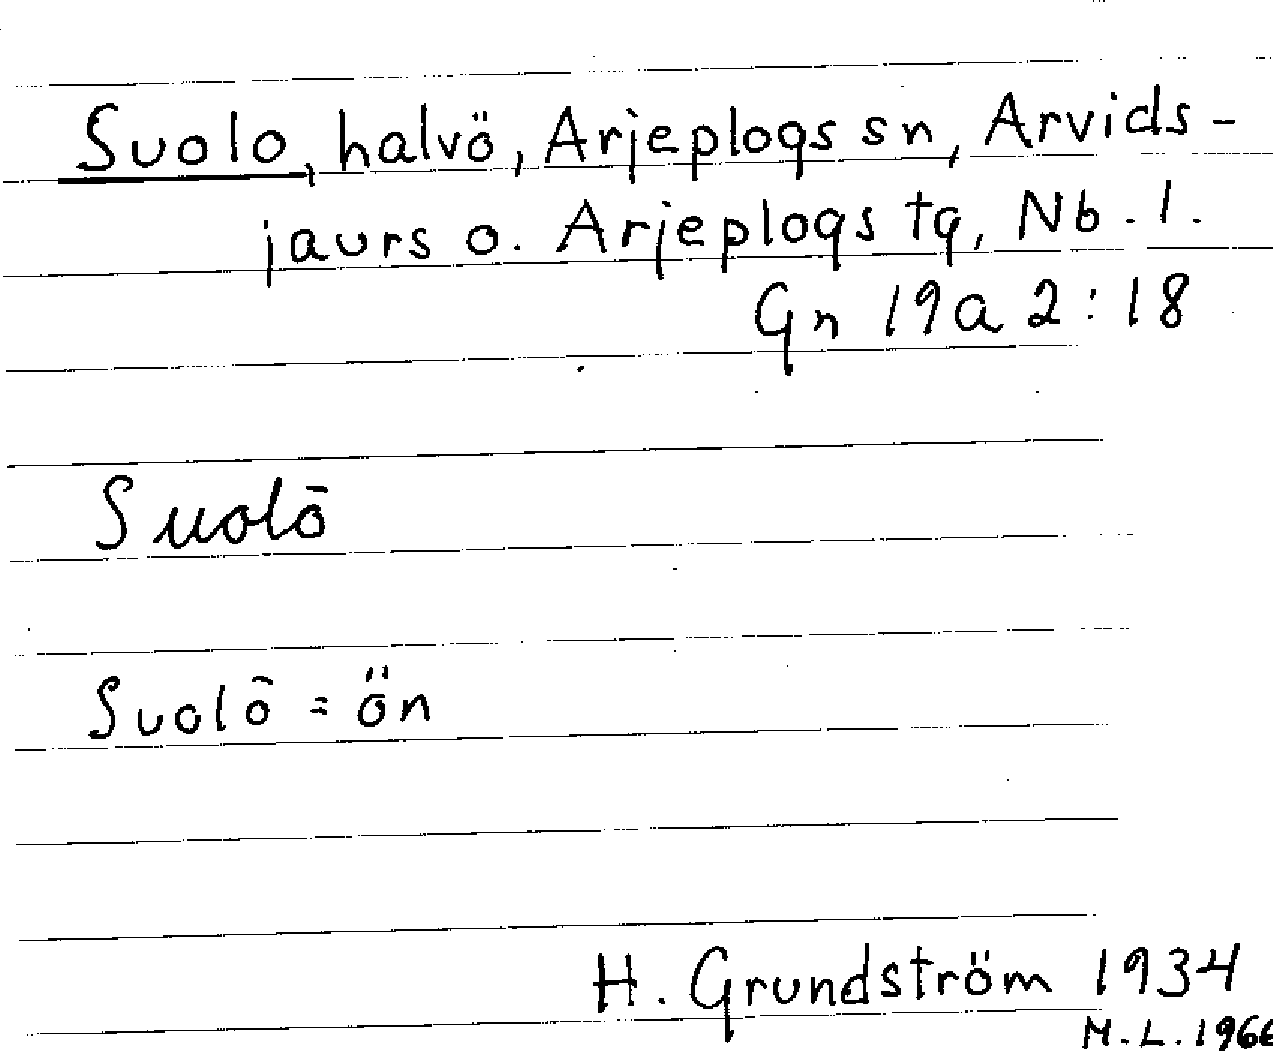 Suolo, halvö, Arjeplogs sn, Arvids-
jaurs o. Arjeplogs tg, Nb. l.
Gn 19a 2:18
Suolō
Suolō = ön
H. Grundström 1934
M.L. 1966